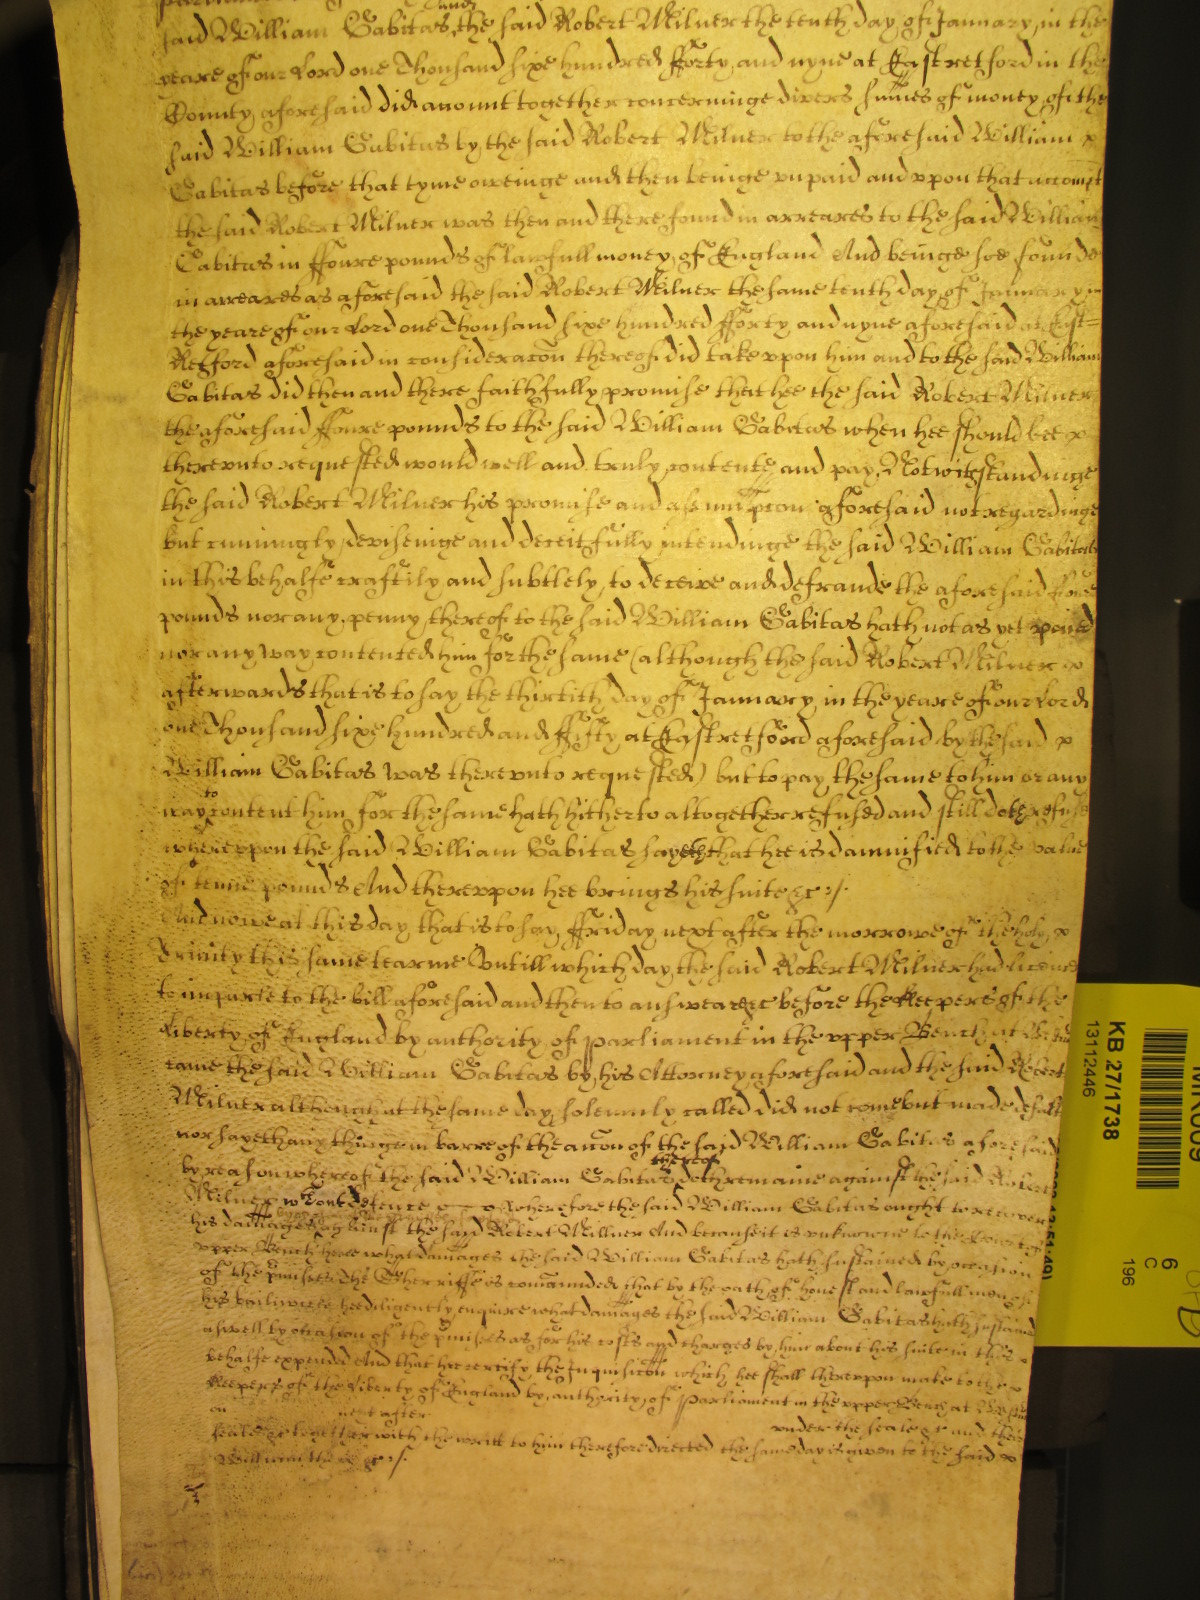 and
said William Gabitas, the said Robert Milner the tenth day of January, in the
yeare of our Lord one Thousand sixe hundred fforty and nyne at Eastretford in the
County aforesaid did account together concerninge divers sumes of money of the
said William Gabitas by the said Robert Milner to the aforesaid William
Gabitas before that tyme oweinge and then beinge vnpaid and vpon that accompt
the said Robert Milner was then and there found in arreares to the said William
Gabitas in ffoure pounds of lawfull money of England And beinge soe founde
in arreares as aforesaid the said Robert Milner the same tenth day of January in
the yeare of our Lord one Thousand sixe hundred fforty and nyne aforesaid at East=
Retford aforesaid in consideracon thereof did take vpon him and to the said William
Gabitas did then and there faithfully promise that hee the said Robert Milner
the aforesaid ffoure pounds to the said William Gabitas when hee should bee
therevnto requested would well and truly contente and pay, Notwithstandinge
the said Robert Milner his promise and assumpcon aforesaid not regardinge
but cunningly deviseinge and deceitfully intendinge the said William Gabitas
in this behalfe craftily and subtlely, to deceive and defraude the aforesaid ffoure
pounds nor any penny thereof to the said William Gabitas hath not as yet paied
nor any way contented him for the same (although the said Robert Milner
afterwards that is to say the thirtith day of January in the yeare of our Lord
one Thousand sixe hundred and ffifty at Eastretford aforesaid by the said
William Gabitas was therevnto requested) but to pay the same to him or any
way to content him for the same hath hitherto altogether refused and still doth refuse
wherevpon the said William Gabitas sayeth that hee is damnified to the value
of tenne pounds And therevpon hee brings his suite &c
And nowe at this day that is to say ffriday next after the morrowe of the holy
Trinity this same tearme Vntill which day the said Robert Milner had licence
to imparle to the bill aforesaid and then to answeare &c before the Keepers of the
Liberty of England by authority of parliament in the vpper Bench at
came the said William Gabitas by his Attorney aforesaid and the said Robert
Milner although at the same day solemnly called did not come but made default
nor sayeth any thinge in barre of the accon of the said William Gabitas aforesaid
by reason whereof the said William Gabitas thereof doth remaine against the said Robert
Milner without defence Wherefore the said William Gabitas ought to recover
his damages against the said Robert Milner And because it is vnknowne to the Court
vpper Bench heere what damages the said William Gabitas hath sustained by occasion
of the pmisses The Sherriffe is comaunded that by the oath of honest and lawfull men of
his bailiwicke hee diligently enquire what damages the said William Gabitas hath sustained
aswell by occasion of the pmisses as for his costs and charges by him about his suite in this
behalfe expended And that hee certify the Inquisicon which hee shall therevpon make to the
Keepers of the Liberty of England by authority of Parliament in the vpper Bench at
on next after under the seale &c and theis
seales &c together with the writt to him therefore directed the same day is given to the said
William there &c
KB 27/1738
13112446
6
C
196